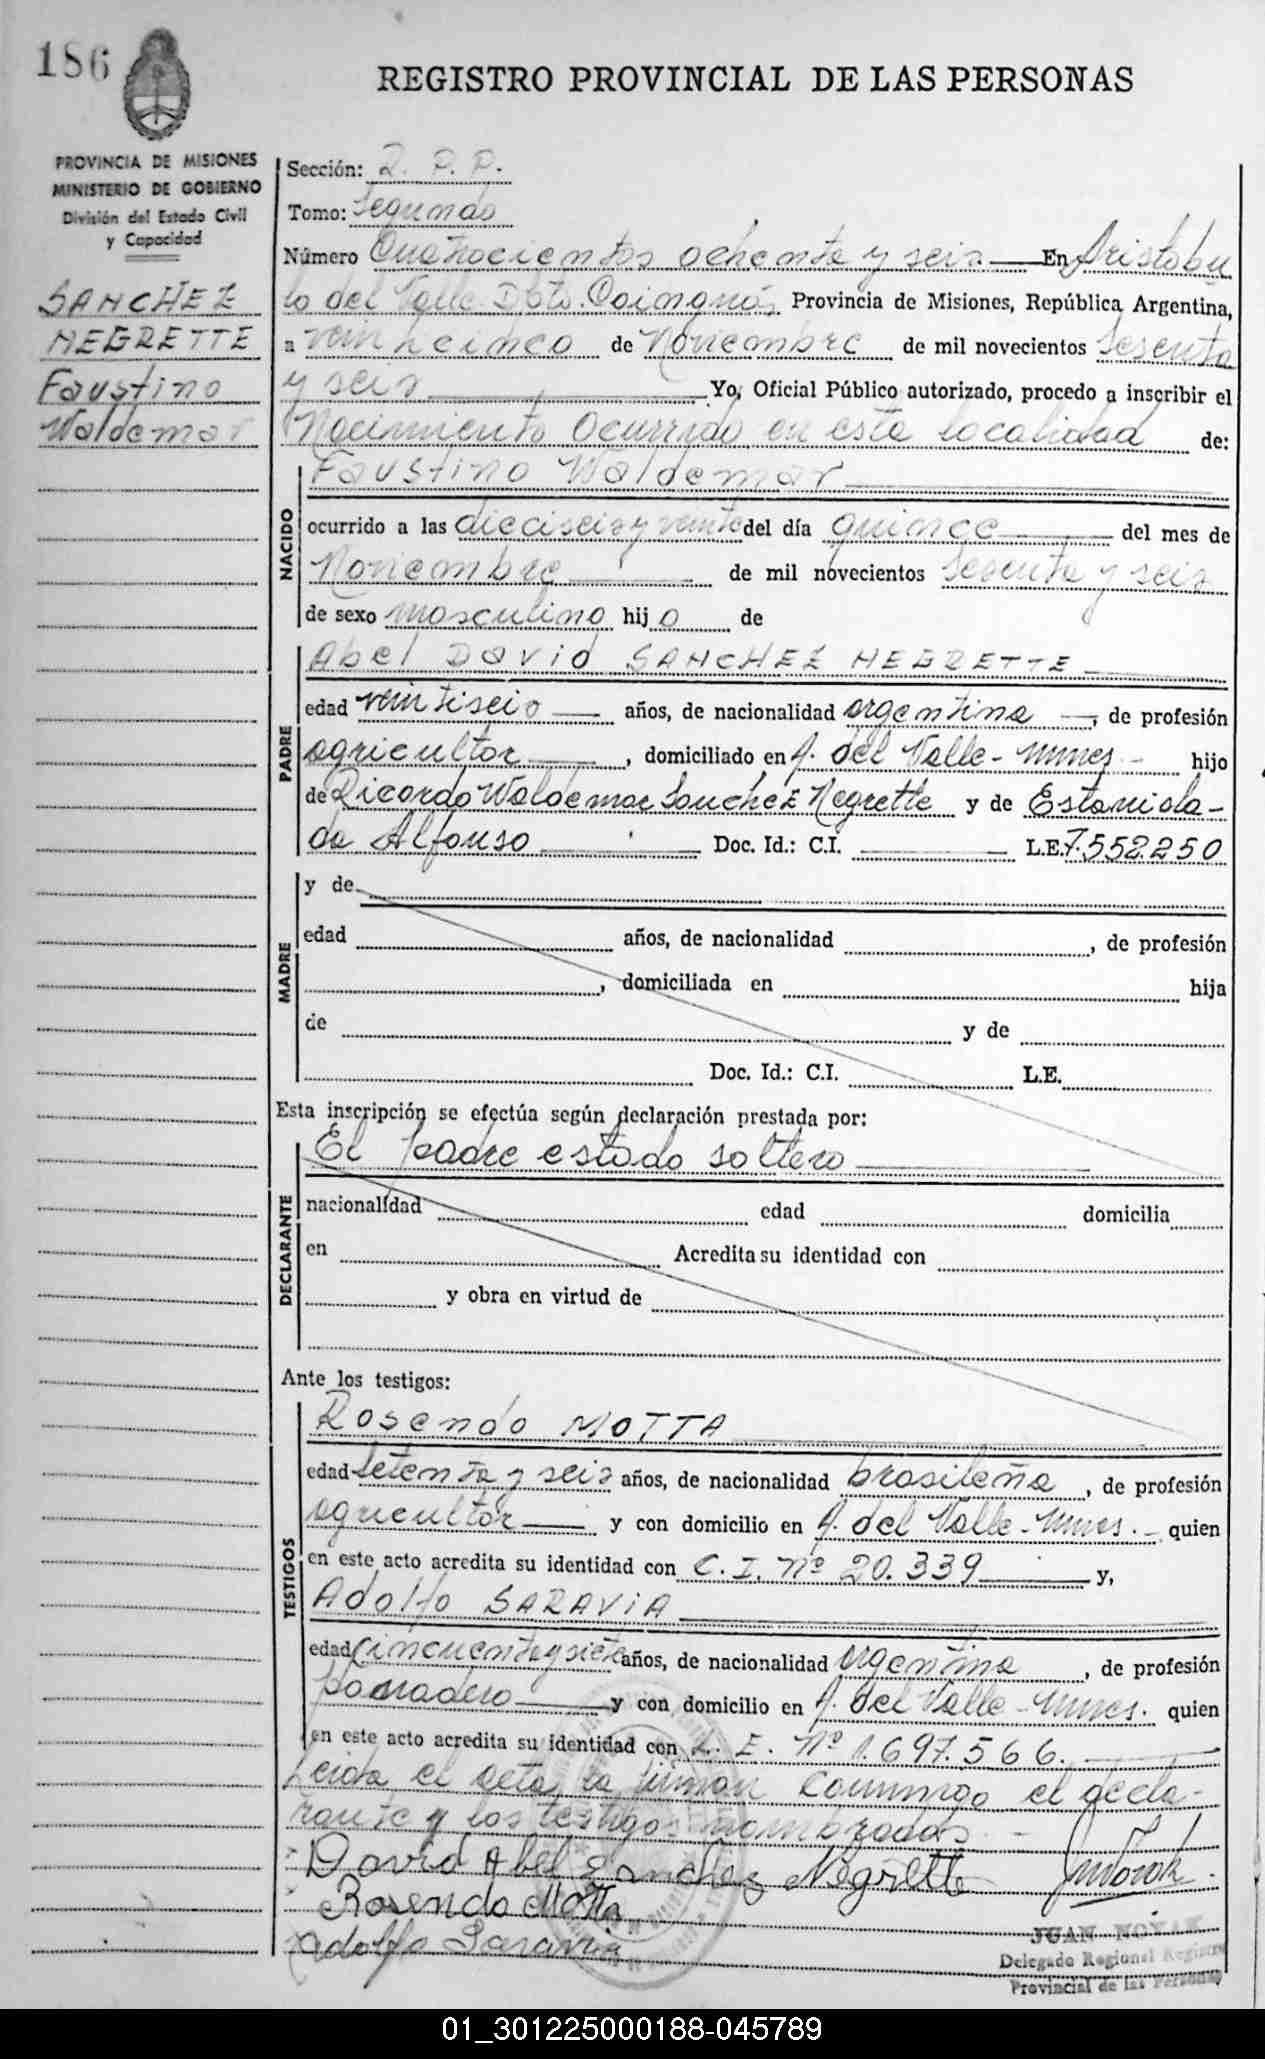 186
REGISTRO PROVINCIAL DE LAS PERSONAS
PROVINCIA DE MISIONES
MINISTERIO DE GOBIERNO
División del Estado Civil
y Capacidad
SANCHEZ
NEGRETTE
Faustino
Waldemar
Sección: 2. P. P.
Tomo: Segundo
Número Cuatrocientos ochenta y seis En Aristobu
lo del Valle Dpto. Cainguás Provincia de Misiones, República Argentina,
a veinticinco de Noviembre de mil novecientos sesenta
y seis Yo, Oficial Público autorizado, procedo a inscribir el
Nacimiento Ocurrido en esta localidad de:
NACIDO
Faustino Waldemar
ocurrido a las dieciseis y veinte del día quince del mes de
Noviembre de mil novecientos sesenta y seis
de sexo masculino hijo de
PADRE
Abel David SANCHEZ NEGRETTE
edad veintiseis años, de nacionalidad argentina, de profesión
agricultor, domiciliado en A. del Valle - Mnes. - hijo
de Ricardo Waldemar Sanchez Negrette y de Estanisla-
da Alfonso Doc. Id.: C.I. L.E. 7.552.250
MADRE
y de
edad años, de nacionalidad , de profesión
, domiciliada en hija
de y de
Doc. Id.: C.I. L.E.
Esta inscripción se efectúa según declaración prestada por:
DECLARANTE
El padre estado soltero
nacionalidad edad domicilia
en Acredita su identidad con
y obra en virtud de
Ante los testigos:
TESTIGOS
Rosendo MOTTA
edad setenta y seis años, de nacionalidad brasileña, de profesión
agricultor y con domicilio en A. del Valle - Mnes. - quien
en este acto acredita su identidad con C. I. Nº 20.339 y,
Adolfo SARAVIA
edad cincuenta y siete años, de nacionalidad argentina, de profesión
panadero y con domicilio en A. del Valle - Mnes. quien
en este acto acredita su identidad con L. E. Nº 1.697.566.
Leida el acta la firman conmigo el decla-
rante y los testigos nombrados. -
David Abel Sanchez Negrette
Rosendo Motta
Adolfo Saravia
JUAN NOVAK
Delegado Regional Registro
Provincial de las Personas
01_301225000188-045789